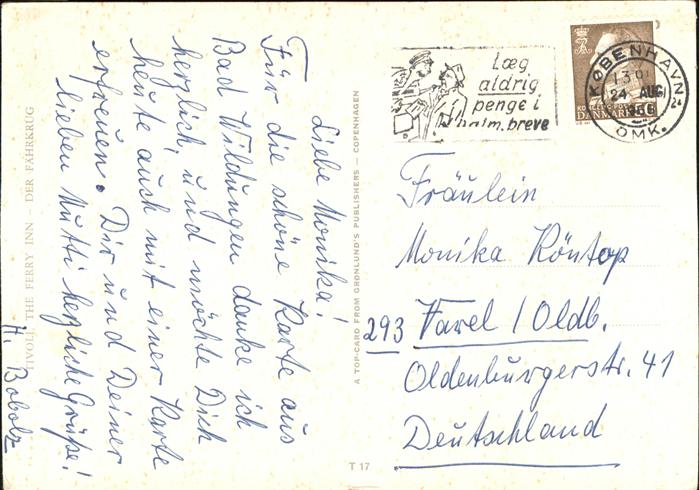 Liebe Monika!
Für die schöne Karte aus
Bad Wildungen danke ich
herzlich, und möchte Dich
heute auch mit einer Karte
erfreuen. Dir und Deiner
lieben Mutti herzliche Grüße!
H. Bobolz
TIVOLI, THE FERRY INN – DER FÄHRKRUG
A TOP-CARD FROM GRØNLUND'S PUBLISHERS – COPENHAGEN
T 17
Læg
aldrig
penge i
alm. breve
KØBENHAVN
24 AUG
OMK.
DANMARK
Fräulein
Monika Röntop
293 Varel / Oldb.
Oldenburgerstr. 41
Deutschland